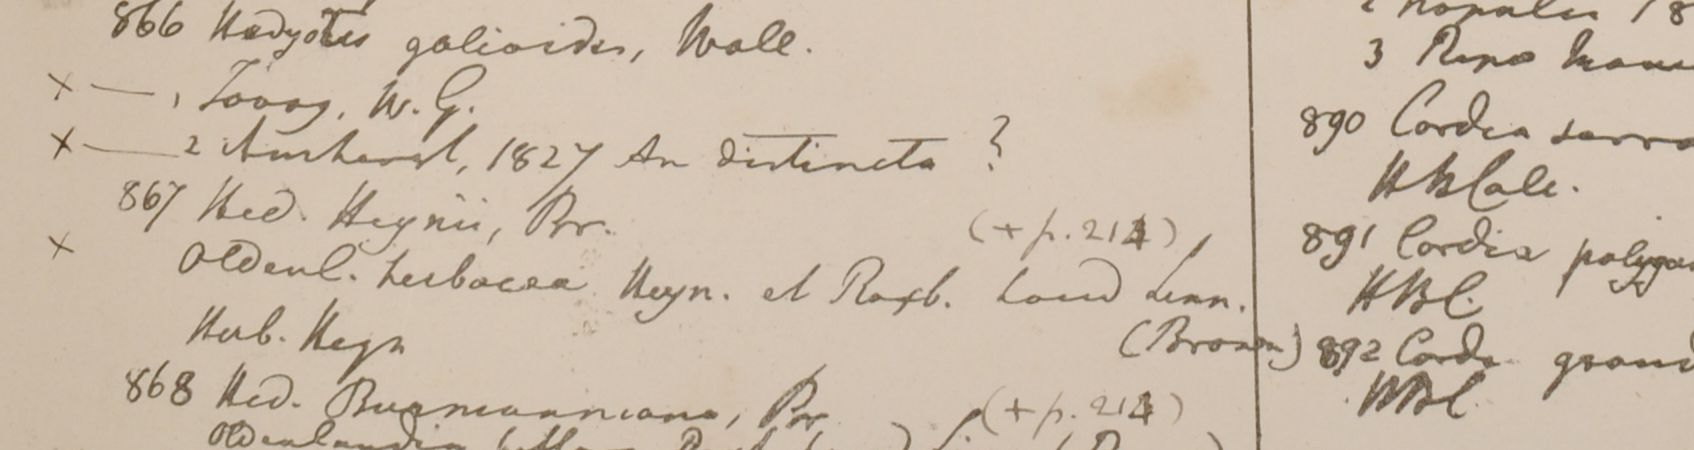 866 Hedyotis galioides, Wall.
× — 1 Tavoy, W.G.
× — 2 Amherst, 1827 An distincta ?
867 Hed. Heynii, Br. (+ p. 214)
× Oldenl. herbacea Heyn. et Roxb. haud Linn.
Herb. Heyn (Brown)
868 Hed. Burmanniana, Br (+ p. 214)
Oldenlandia
2 Napalia 18
3 Ripa
890 Cordia serra
HBCalc.
891 Cordia polyga
HBC.
892 Cordia grand
HBC